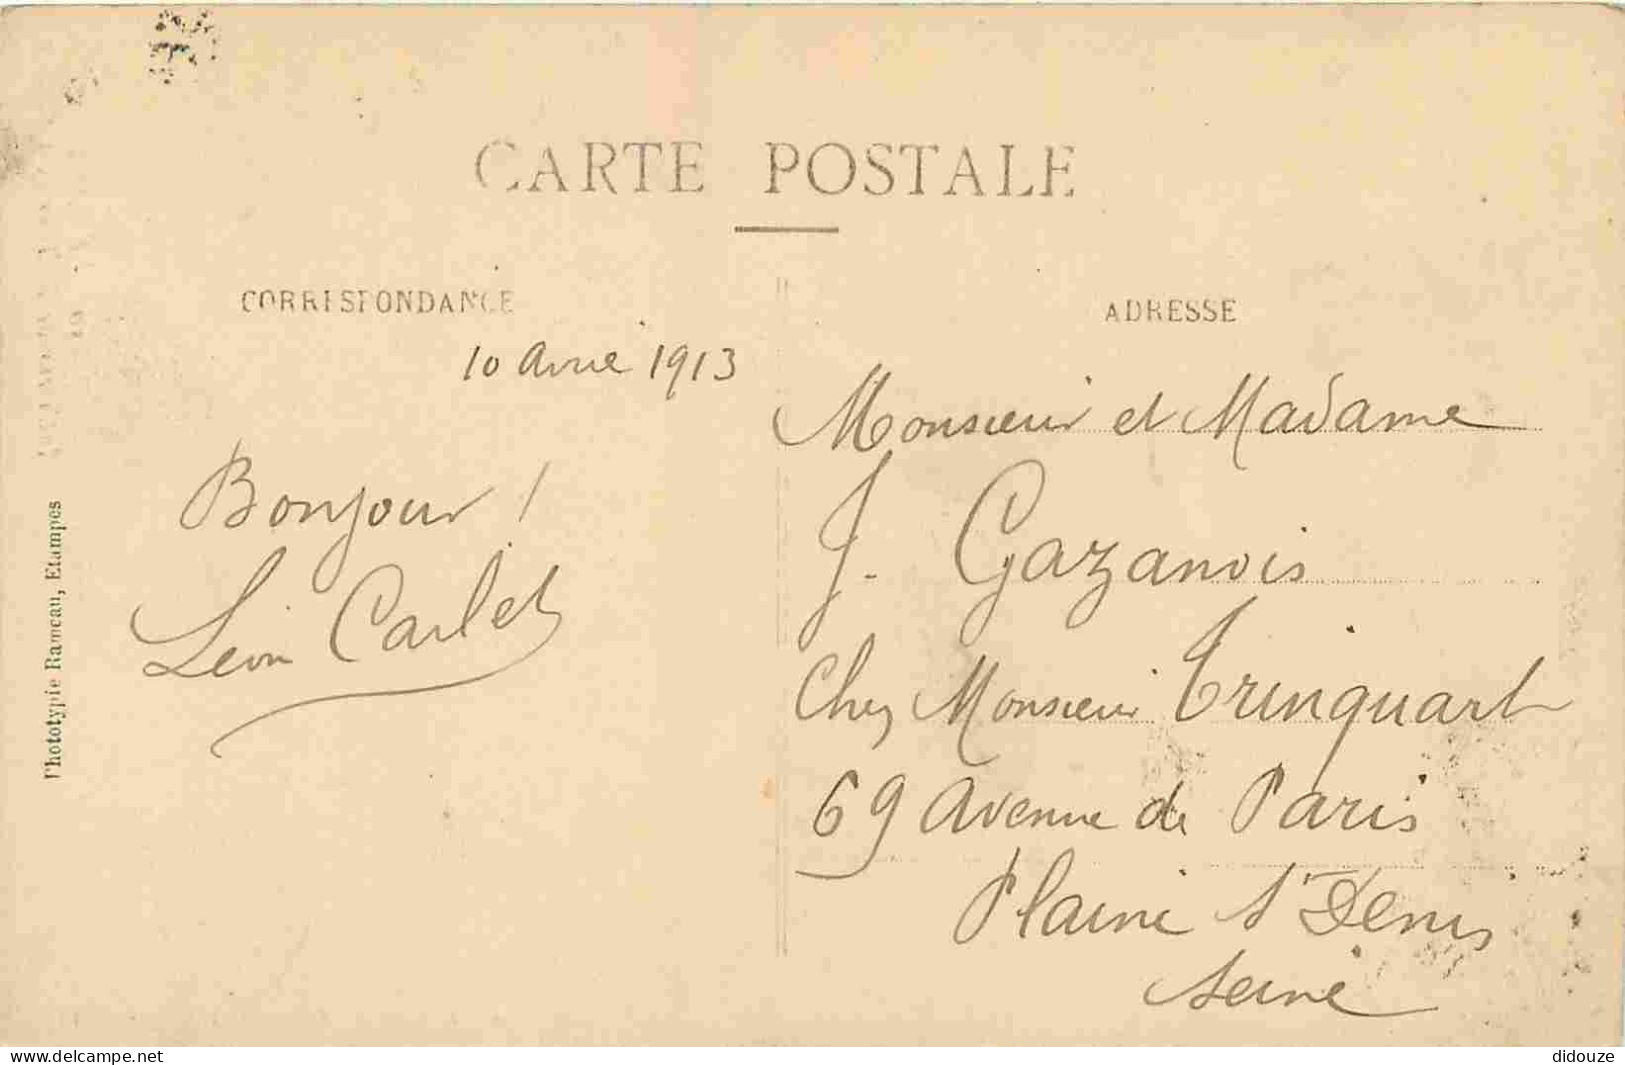 CARTE POSTALE
CORRESPONDANCE
10 Avril 1913
Bonjour !
Léon Carlet
Phototypie Rameau, Etampes
ADRESSE
Monsieur et Madame
J. Gazanois
Chez Monsieur Trinquart
69 Avenue de Paris
Plaine St Denis
Seine
www.delcampe.net
didouze